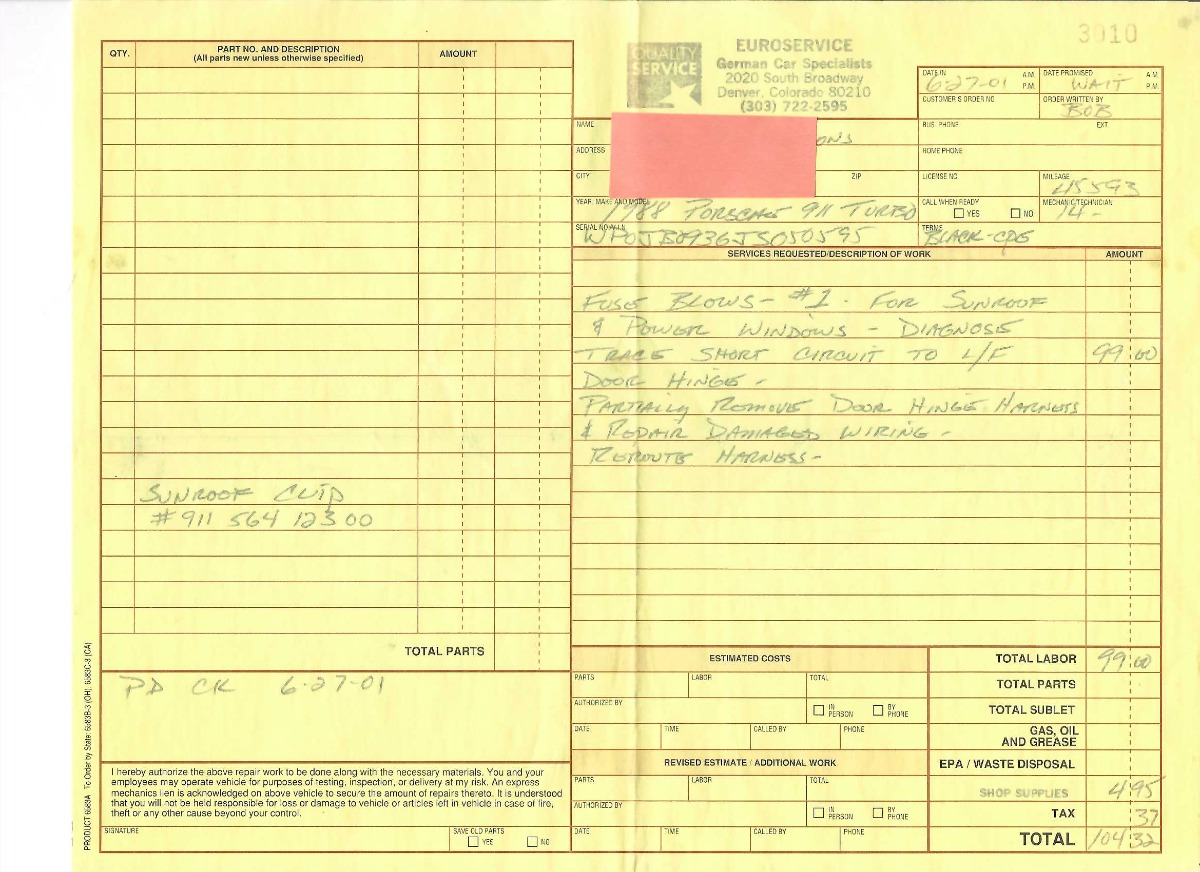 3010
QUALITY
SERVICE
EUROSERVICE
German Car Specialists
2020 South Broadway
Denver, Colorado 80210
(303) 722-2595
QTY.
PART NO. AND DESCRIPTION
(All parts new unless otherwise specified)
AMOUNT
SUNROOF CLIP
# 911 564 123 00
TOTAL PARTS
PD CK 6-27-01
DATE IN 6-27-01 A.M. P.M.
DATE PROMISED WAIT A.M. P.M.
CUSTOMER'S ORDER NO.
ORDER WRITTEN BY BOB
NAME ONS
BUS. PHONE EXT.
ADDRESS
HOME PHONE
CITY ZIP
LICENSE NO.
MILEAGE 45593
YEAR, MAKE AND MODEL 1988 PORSCHE 911 TURBO
CALL WHEN READY YES NO
MECHANIC/TECHNICIAN 14-
SERIAL NO./V.I.N. WP0JB0936JS050595
TERMS BLACK-CPE
SERVICES REQUESTED/DESCRIPTION OF WORK AMOUNT
FUSE BLOWS - #1 - FOR SUNROOF
& POWER WINDOWS - DIAGNOSE
TRACE SHORT CIRCUIT TO L/F 99:00
DOOR HINGE -
PARTIALLY REMOVE DOOR HINGE HARNESS
& REPAIR DAMAGED WIRING -
REROUTE HARNESS -
ESTIMATED COSTS
PARTS LABOR TOTAL
AUTHORIZED BY IN PERSON BY PHONE
DATE TIME CALLED BY PHONE
REVISED ESTIMATE / ADDITIONAL WORK
PARTS LABOR TOTAL
AUTHORIZED BY IN PERSON BY PHONE
DATE TIME CALLED BY PHONE
TOTAL LABOR 99:00
TOTAL PARTS
TOTAL SUBLET
GAS, OIL
AND GREASE
EPA / WASTE DISPOSAL
SHOP SUPPLIES 4 95
TAX 37
TOTAL 104 32
I hereby authorize the above repair work to be done along with the necessary materials. You and your
employees may operate vehicle for purposes of testing, inspection, or delivery at my risk. An express
mechanics lien is acknowledged on above vehicle to secure the amount of repairs thereto. It is understood
that you will not be held responsible for loss or damage to vehicle or articles left in vehicle in case of fire,
theft or any other cause beyond your control.
SIGNATURE
SAVE OLD PARTS
YES NO
PRODUCT 6583A To Order by State: 6583B-3 (OH), 6583C-3 (CA)